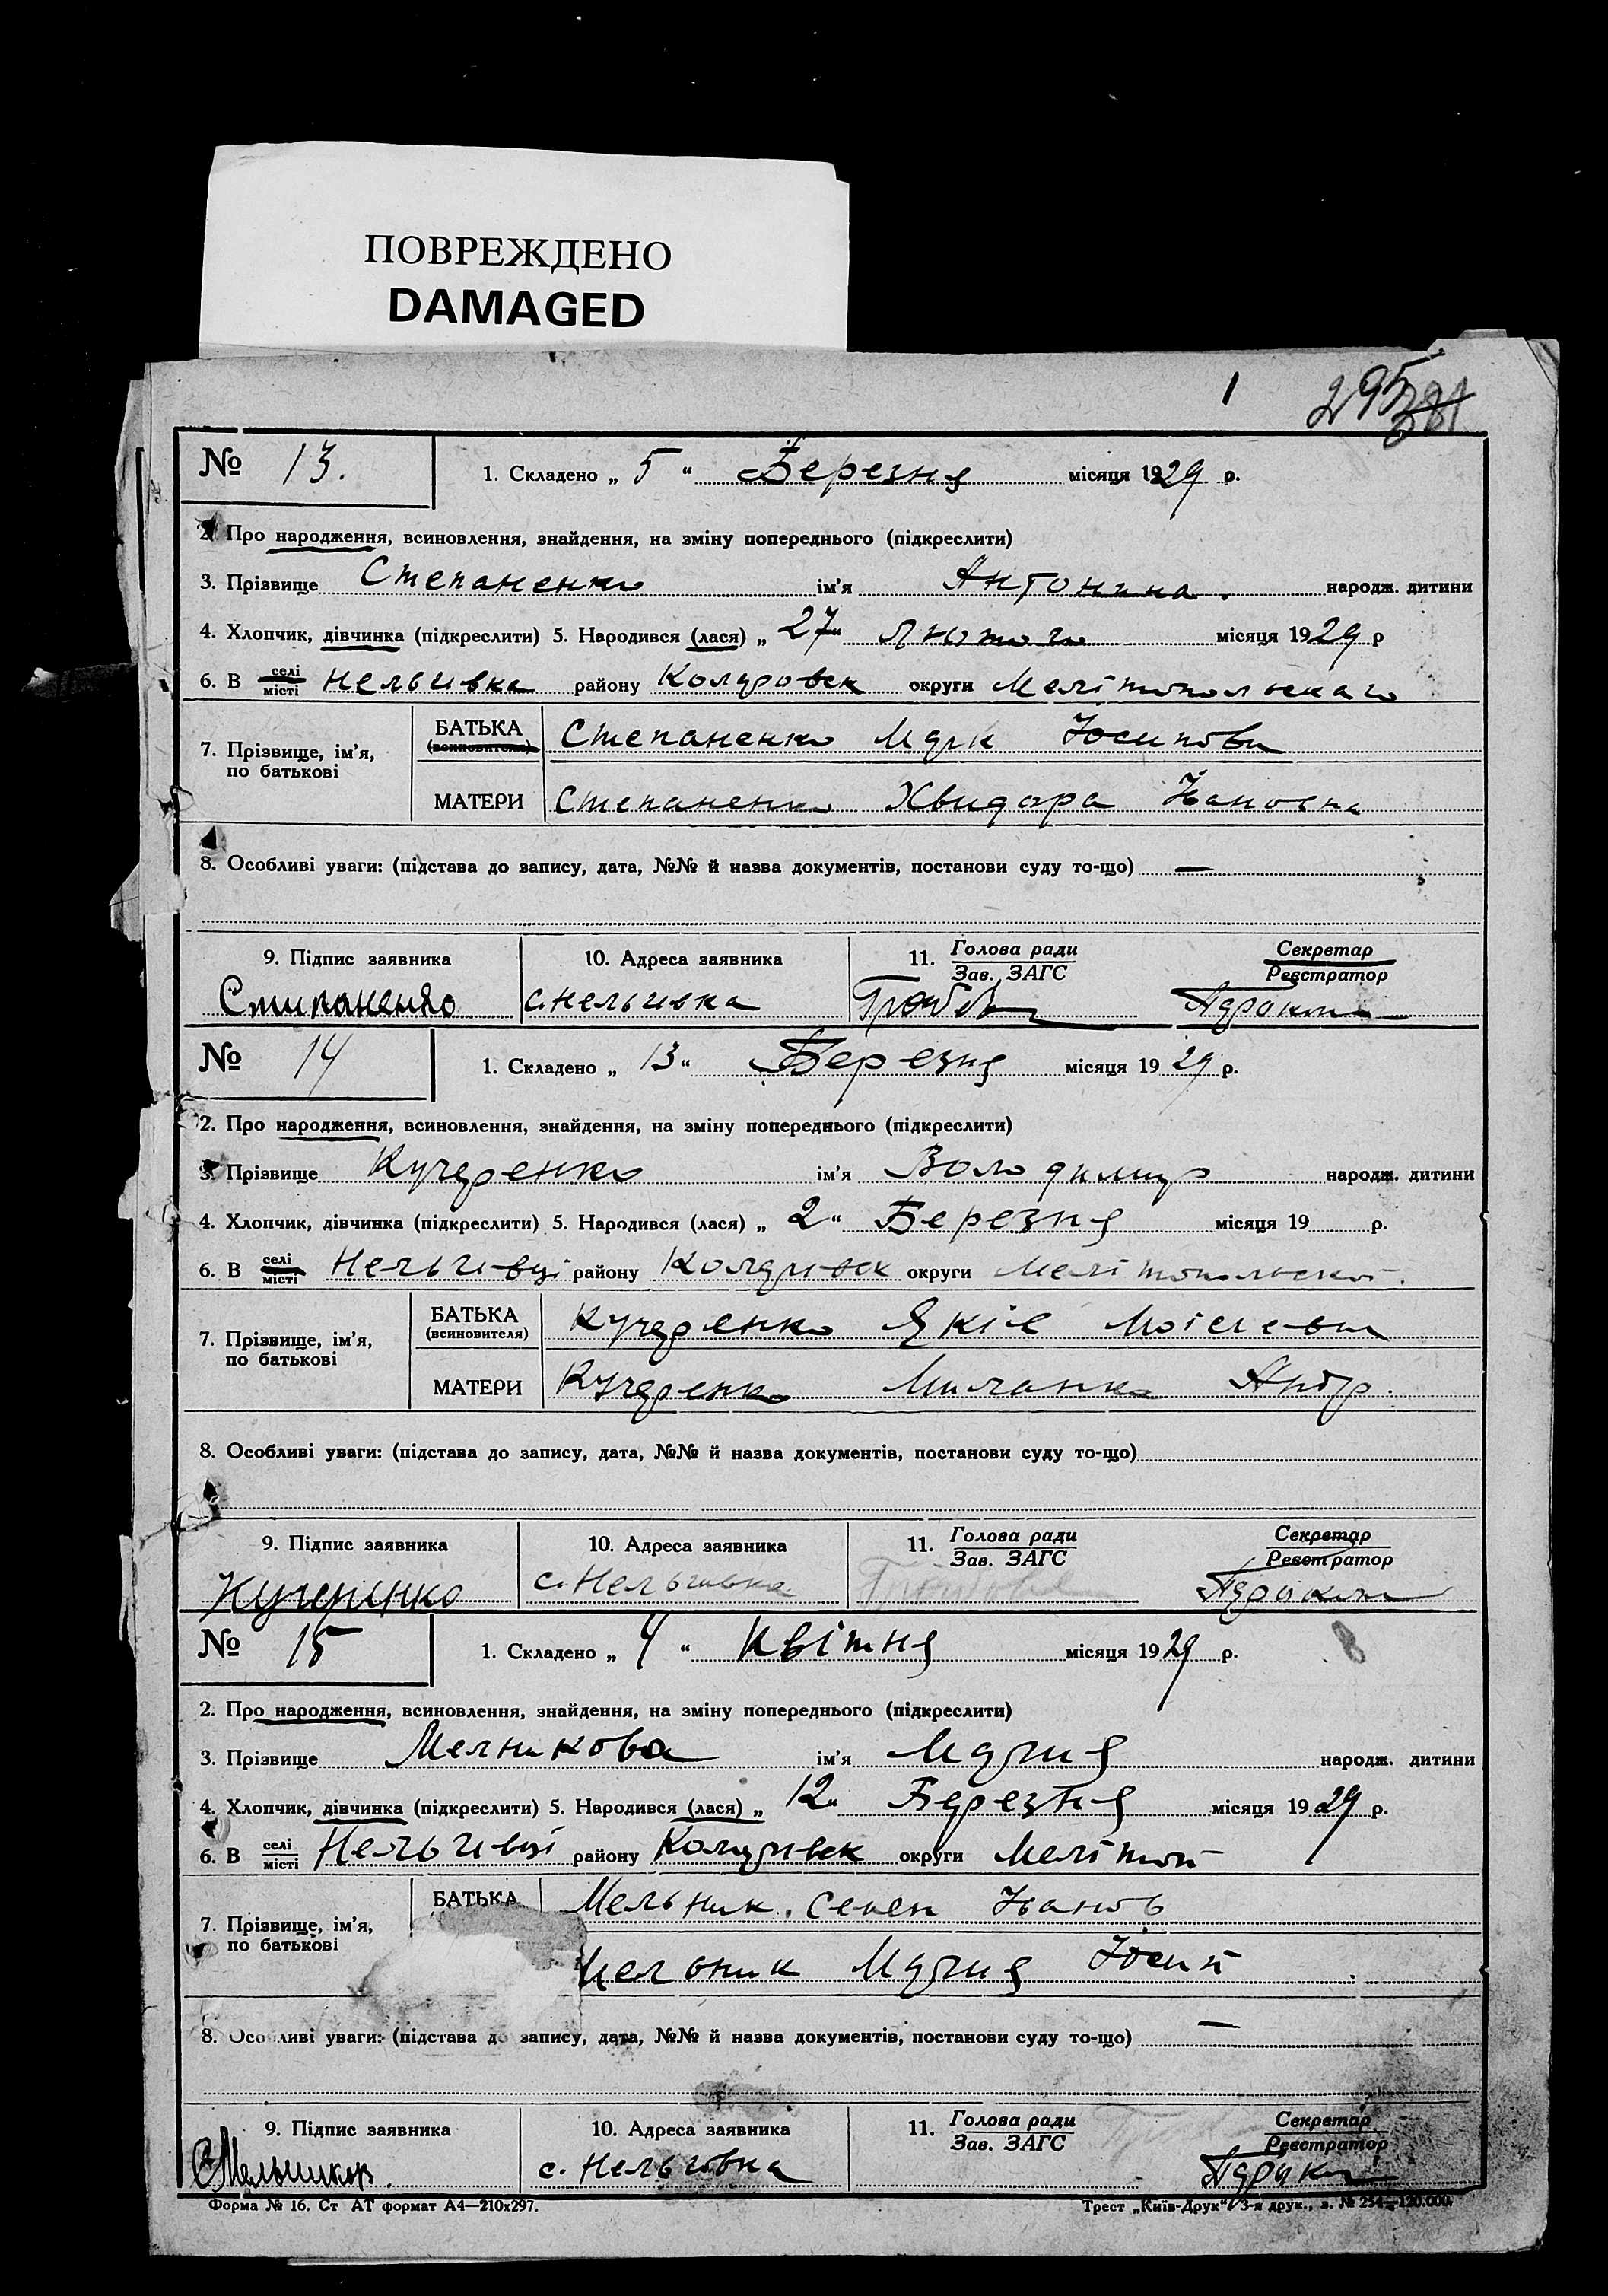 ПОВРЕЖДЕНО
DAMAGED
1 295 381
№ 13. 1. Складено „ 5 “ Березня місяця 1929 р.
2. Про народження, всиновлення, знайдення, на зміну попереднього (підкреслити)
3. Прізвище Степаненко ім’я Антонина. народж. дитини
4. Хлопчик, дівчинка (підкреслити) 5. Народився (лася) „ 27 “ Лютого місяця 1929 р
6. В селі місті Нельгивка району Коларовск округи Мелітопольскаго
7. Прізвище, ім’я, по батькові БАТЬКА (всиновителя) Степаненко Марк Йосипови
МАТЕРИ Степаненко Хвидора Ивановна
8. Особливі уваги: (підстава до запису, дата, №№ й назва документів, постанови суду то-що) —
9. Підпис заявника 10. Адреса заявника 11. Голова ради Зав. ЗАГС Секретар Реєстратор
Стипаненко с. Нельгивка
№ 14 1. Складено „ 13 “ Березня місяця 1929 р.
2. Про народження, всиновлення, знайдення, на зміну попереднього (підкреслити)
3. Прізвище Кучеренко ім’я Володимир народж. дитини
4. Хлопчик, дівчинка (підкреслити) 5. Народився (лася) „ 2 “ Березня місяця 19 р.
6. В селі місті Нельгивці району Коларивск округи Мелітопольскої.
7. Прізвище, ім’я, по батькові БАТЬКА (всиновителя) Кучеренко Яків Моісеевич
МАТЕРИ Кучеренко Миланка Андр.
8. Особливі уваги: (підстава до запису, дата, №№ й назва документів, постанови суду то-що)
9. Підпис заявника 10. Адреса заявника 11. Голова ради Зав. ЗАГС Секретар Реєстратор
Кучеринко с. Нельгивка
№ 15 1. Складено „ 4 “ Квітня місяця 1929 р.
2. Про народження, всиновлення, знайдення, на зміну попереднього (підкреслити)
3. Прізвище Мелникова ім’я Мария народж. дитини
4. Хлопчик, дівчинка (підкреслити) 5. Народився (лася) „ 12 “ Березня місяця 1929 р.
6. В селі місті Нельгивці району Коларивск округи Мелітоп
7. Прізвище, ім’я, по батькові БАТЬКА Мельник. Семен Иванов
Мельник Мария Йосип
8. Особливі уваги: (підстава до запису, дата, №№ й назва документів, постанови суду то-що) —
9. Підпис заявника 10. Адреса заявника 11. Голова ради Зав. ЗАГС Секретар Реєстратор
С Мельников. с. Нельговка
Форма № 16. Ст АТ формат А4—210х297. Трест „Київ-Друк“ 3-я друк., з. № 254—120.000.